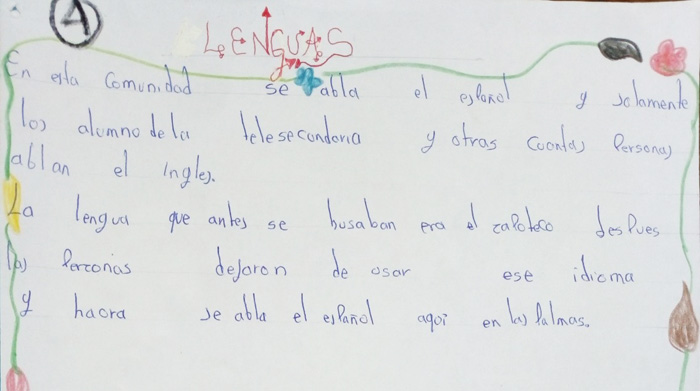 A
LENGUAS
En esta Comunidad se abla el español y solamente
los alumno de la telesecondaria y otras cuantas Personas
ablan el Ingles.
La lengua que antes se busaban era el zapoteco desPues
las Perconas dejaron de usar ese idioma
y haora se abla el español aqui en las Palmas.